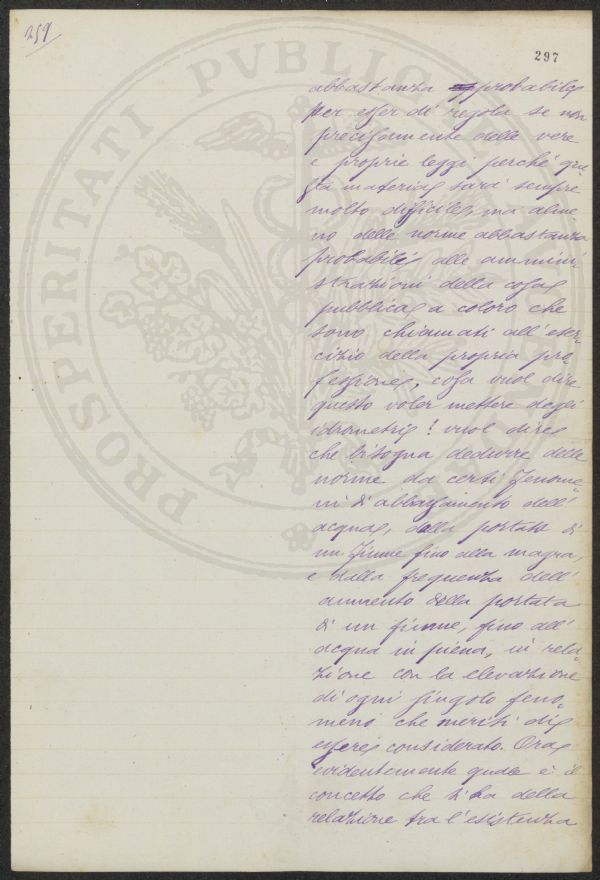 259
297
PROSPERITATI PVBLICAE
abbastanza probabile
per esser di regola se non
precisamente delle vere
e proprie leggi perché que-
sta materia sarà sempre
molto difficile, ma alme-
no delle norme abbastanza
probabili alle ammini-
strazioni della cosa
pubblica, a coloro che
sono chiamati all'eser-
cizio della propria pro-
fessione, cosa vuol dire
questo voler mettere degli
idrometri? vuol dire
che bisogna dedurre delle
norme da certi fenome-
ni di abbassamento dell'
acqua, dalla portata di
un fiume fino alla magra,
e dalla frequenza dell'
aumento della portata
di un fiume, fino all'
acqua in piena, in rela-
zione con la elevazione
di ogni singolo feno-
meno che meriti di
essere considerato. Ora
evidentemente quale è il
concetto che si ha della
relazione tra l'esistenza